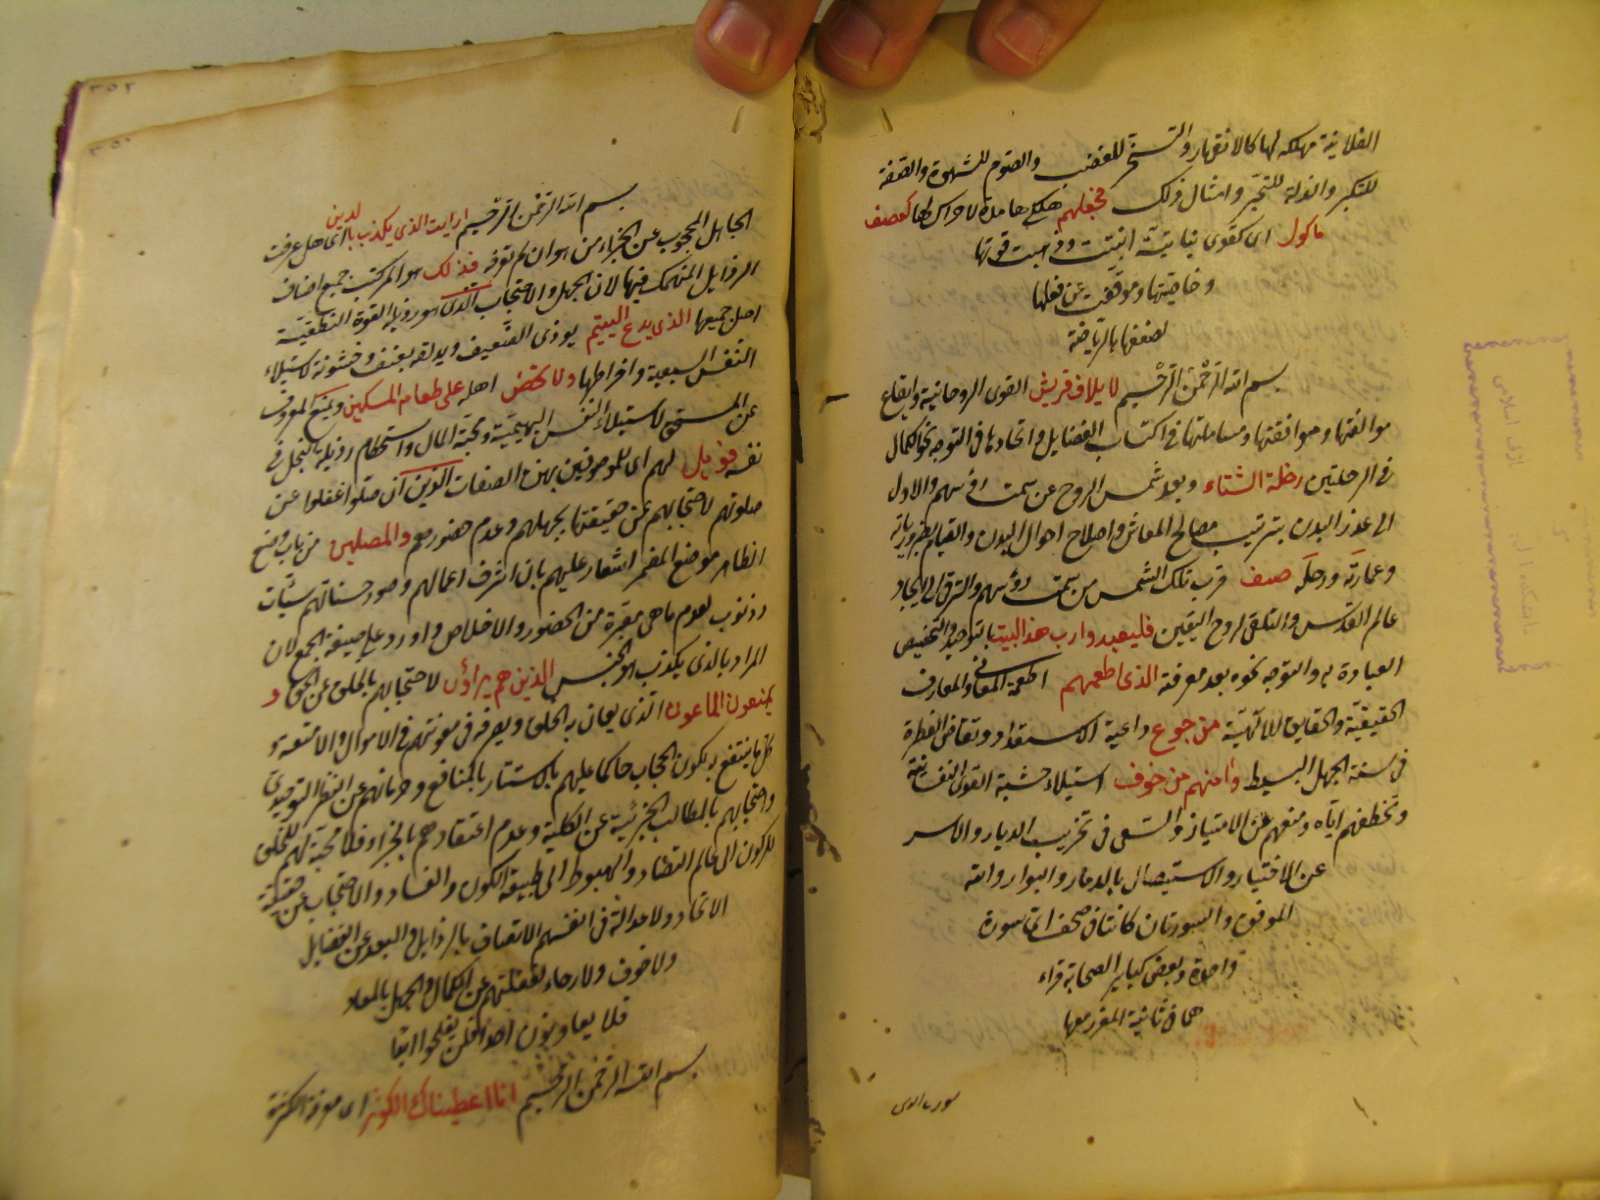 الفلانية مهلكه لها كالانقهار والتسخر للغضب والصوم للشهوة والضعفة
للتكبر والذلة للتجبر وامثال ذلك فجعلهم هلكى هامدة لا حراك لها كعصف
ماكول اى كقوى نباتية انبتت وذهبت قوتها
وخاصيتها وتوقفت عن فعلها
لضعفها بالرياضة
بسم الله الرحمن الرحيم لايلاف قريش القوى الروحانية وايقاع
موالفتها وموافقتها ومسالمتها فى اكتساب الفضايل واتحادها فى التوجه نحو الكمال
فى الرحلتين رحلة الشتاء وبعد شمس الروح عن سمت رؤسهم والاول
الى عذر البدن بترتيب مصالح المعاش واصلاح احوال البدن والقيام بضرورياته
وعمارته ورحلة صيف قرب تلك الشمس من سمت رؤسهم والترقى الى الايجاد
عالم القدس والتلقى لروح اليقين فليعبدوا رب هذا البيت بالتوحيد والتخصيص
العبادة به والتوجه نحوه بعد معرفته الذى اطعمهم اطعمة المعانى والمعارف
الحقيقية والحقايق الالهية من جوع داعية الاستعداد وتقاضى الفطرة
فى سنة الجهل البسيط وامنهم من خوف استيلاء حشية القوى النفسانية
وتخطفهم اياه ومنعهم عن الامتياز والسعى فى تخريب الديار والاسر
عن الاختيار والاستيصال بالدمار والبوار والله
الموفق والسورتان كانتا فى صحف ابى سورة
واحدة وبعض كبار الصحابة قراء
هما فى ثانية المغرب معا
بسم الله الرحمن الرحيم ارايت الذى يكذب بالدين اى هل عرفت
الجاهل المحجوب عن الجزاء من هو ان لم تعرفه فذلك هو المرتكب جميع اصناف
الرذايل المنهمك فيها لان الجهل والاحتجاب الذى هو رذيلة القوة النطقية
اصل جميعها الذى يدع اليتيم يوذى الضعيف ويدفعه بعنف وخشونة لاستيلاء
النفس السبعية وافراطها ولا يحض اهله على طعام المسكين ويمنع المعروف
عن المستحق لاستيلاء النفس البهيمية ومحبة المال واستحكام رذيلة البخل فى
نفسه فويل لهم اى للموصوفين بهذه الصفات الذين ان صلوا غفلوا عن
صلوتهم لاحتجابهم عن حقيقتها بجهلهم وعدم حضورهم والمصلين من باب وضع
الظاهر موضع المضمر اشعار عليهم بان اشرف اعمالهم وصور حسناتهم سيئات
وذنوب لعدم ما هى معتبرة من الحضور والاخلاص واورد على صيغة الجمع لان
المراد بالذى يكذب هو الجنس الذين هم يراؤن لاحتجابهم بالخلق عن الحق و
يمنعون الماعون الذى يعان به الخلق ويصرف فى معونتهم فى الاموال والامتعة و
كل ما ينتفع به يكون الحجاب حاكما عليهم بالاستتار بالمنافع وحرمانهم عن النظر التوحيدى
واحتجابهم بالمطالب الجزئية عن الكلية وعدم اعتقادهم بالجزاء فلا محبة لهم للخلق
للركون الى عالم التضاد والهبوط الى طبيعة الكون والفساد والاحتجاب عن حقيقة
الاتحاد ولا عدالة فى انفسهم الاتصاف بالرذايل والبعد عن الفضايل
ولا خوف ولا رجاء لغفلتهم عن الكمال والجهل بالمعاد
فلا يعاونون احدا فلن يفلحوا ابدا
بسم الله الرحمن الرحيم انا اعطيناك الكوثر اى معرفة الكثرة